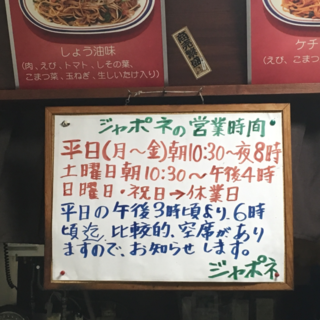 しょう油味
(肉、えび、トマト、しその葉、
こまつ菜、玉ねぎ、生しいたけ入り)
ケチ
(えび、こまつ
ジャポネの営業時間
平日(月〜金)朝10:30〜夜8時
土曜日朝10:30〜午後4時
日曜日・祝日→休業日
平日の午後3時頃より、6時
頃迄、比較的、空席があり
ますので、お知らせします。
ジャポネ